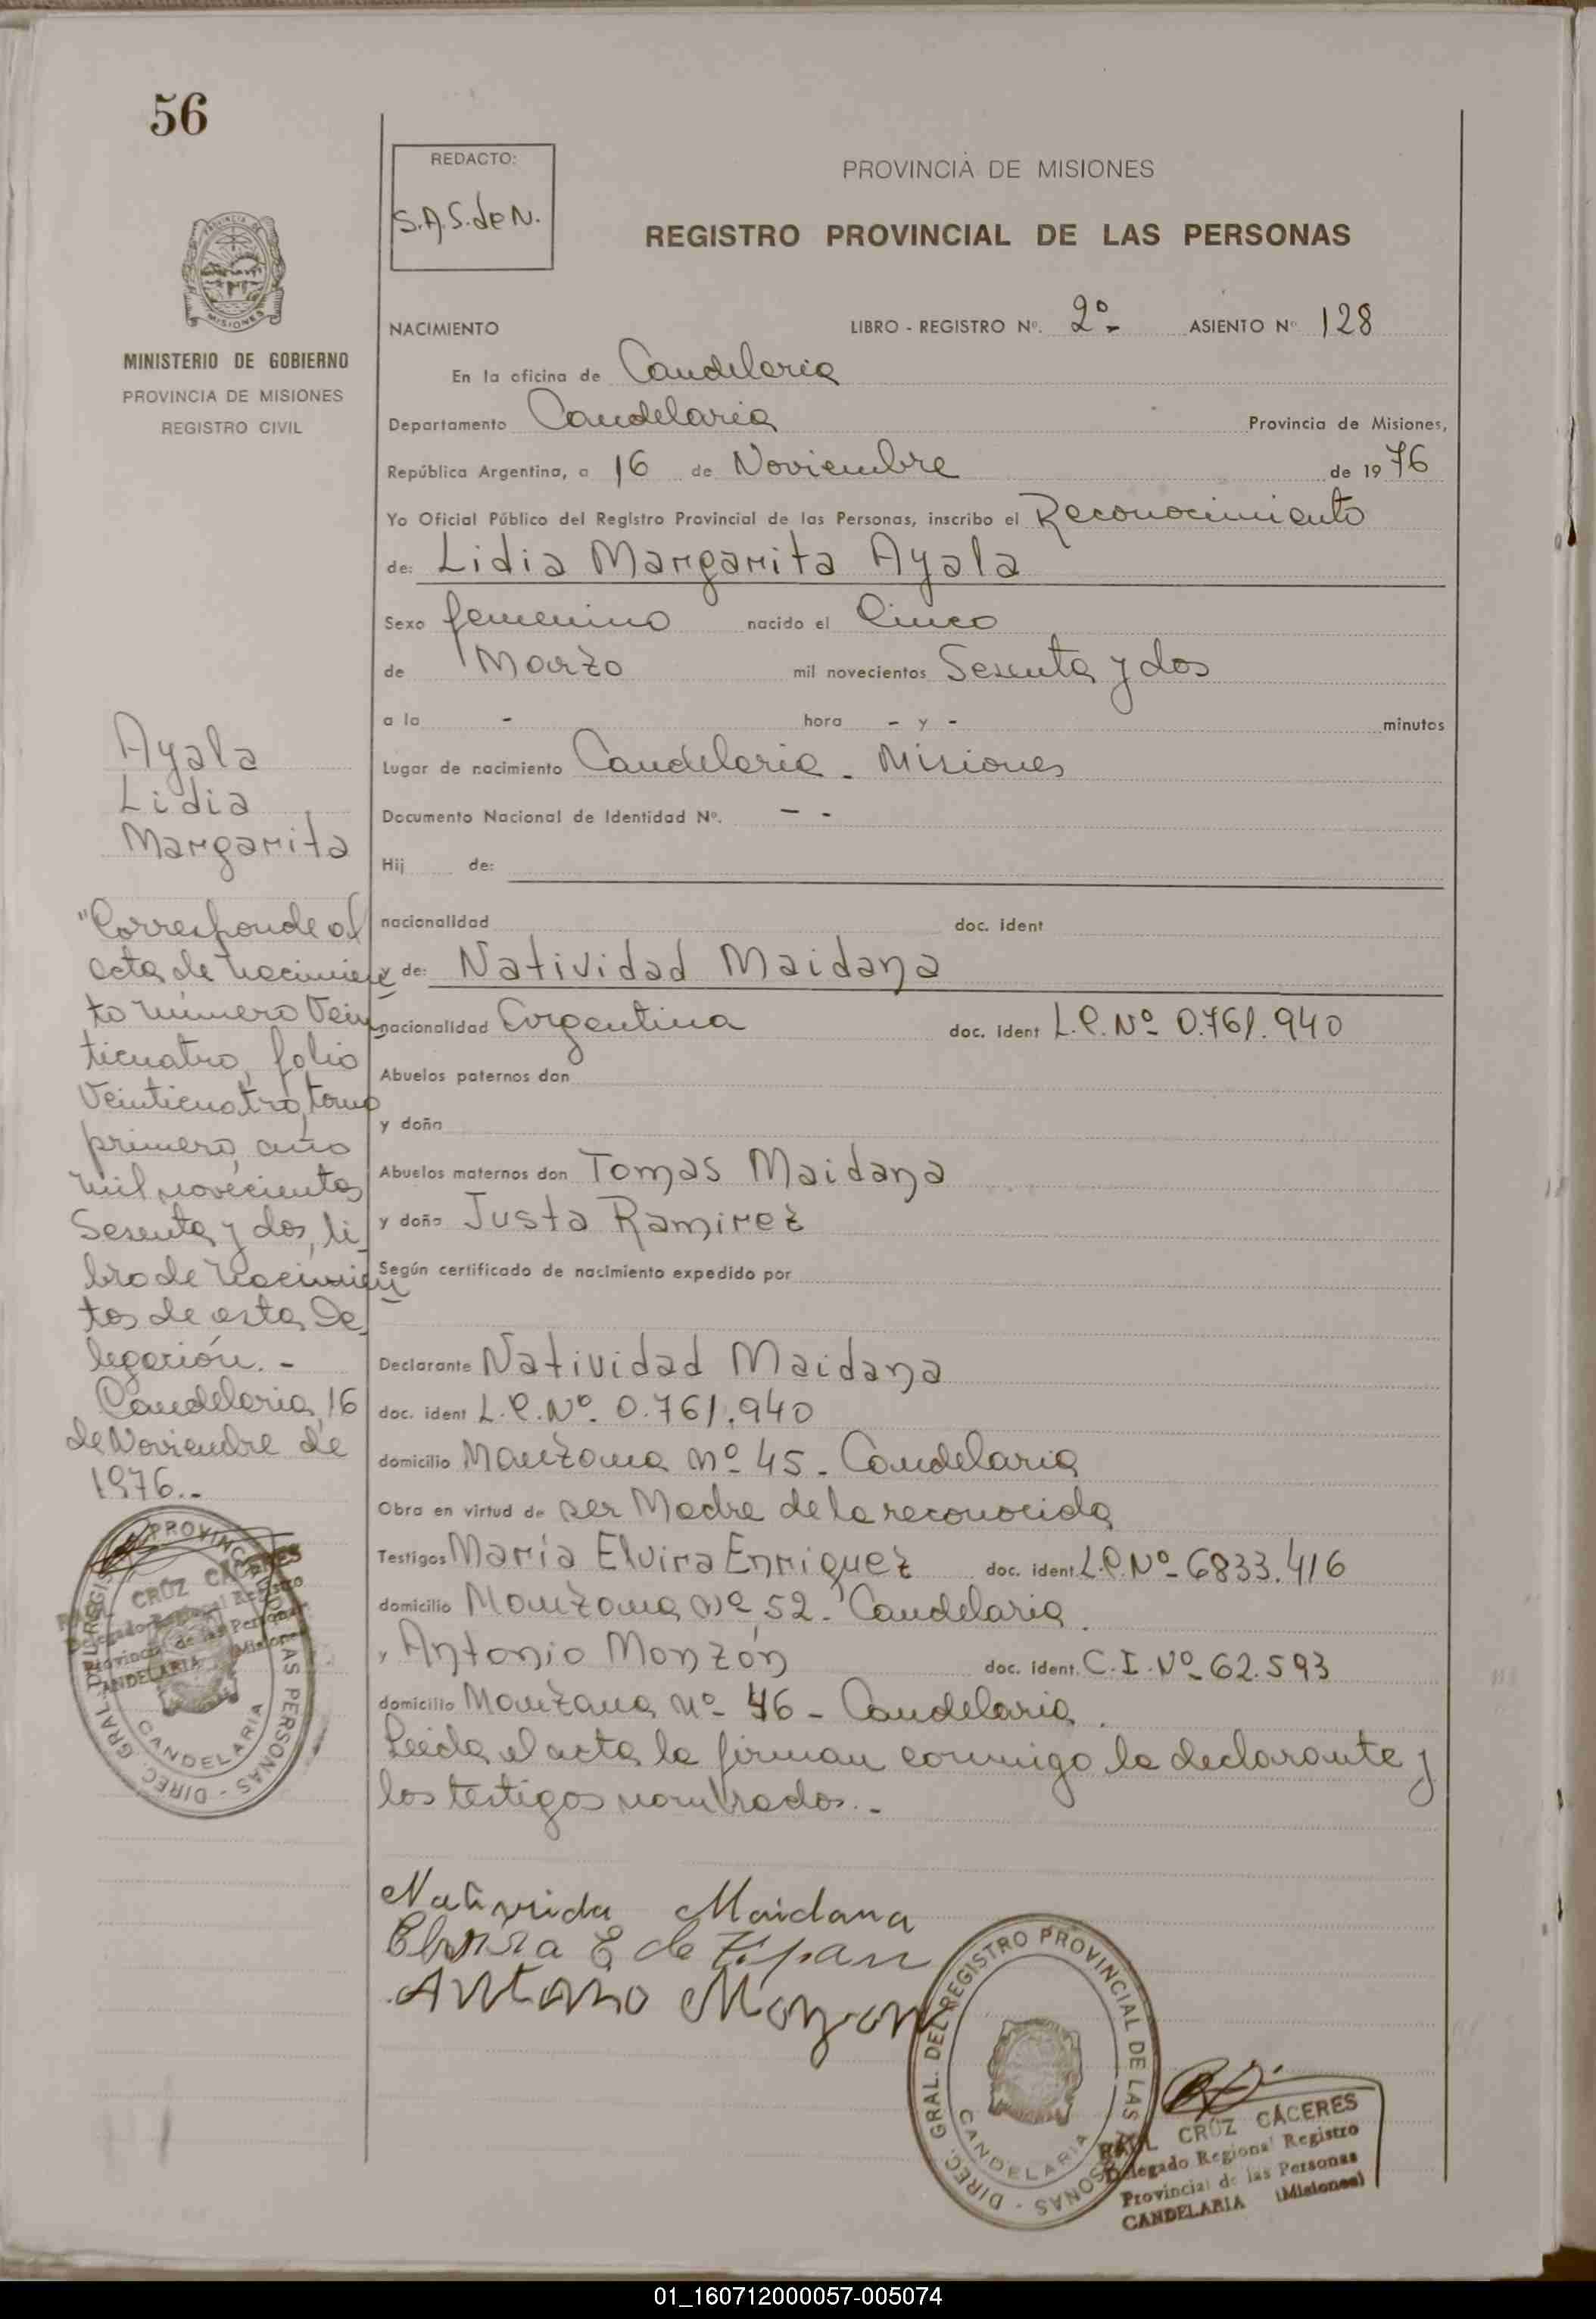 56
REDACTO:
S.A.S. de N.
PROVINCIA DE MISIONES
REGISTRO PROVINCIAL DE LAS PERSONAS
MINISTERIO DE GOBIERNO
PROVINCIA DE MISIONES
REGISTRO CIVIL
NACIMIENTO LIBRO - REGISTRO Nº. 2º- ASIENTO Nº 128
En la oficina de Candelaria
Departamento Candelaria Provincia de Misiones,
República Argentina, a 16 de Noviembre de 1976
Yo Oficial Público del Registro Provincial de las Personas, inscribo el Reconocimiento
de: Lidia Margarita Ayala
Sexo femenino nacido el Cinco
de Marzo mil novecientos Sesenta y dos
a la - hora - y - minutos
Lugar de nacimiento Candelaria - Misiones
Documento Nacional de Identidad Nº. - -
Hij de:
nacionalidad doc. ident
y de: Natividad Maidana
nacionalidad Argentina doc. ident L.C. Nº 0.761.940
Abuelos paternos don
y doña
Abuelos maternos don Tomas Maidana
y doña Justa Ramirez
Según certificado de nacimiento expedido por
Declarante Natividad Maidana
doc. ident L.C. Nº. 0.761.940
domicilio Manzana nº 45 - Candelaria
Obra en virtud de ser Madre de la reconocida
Testigos María Elvira Enriquez doc. ident L.C. Nº- 6833.416
domicilio Manzana nº 52 - Candelaria
y Antonio Monzón doc. ident. C.I. Nº- 62.593
domicilio Manzana nº- 46 - Candelaria.
Leída el acta la firman conmigo la declarante y
los testigos nombrados.-
Ayala
Lidia
Margarita
"Corresponde al
acta de nacimien
to número Vein
ticuatro, folio
Veinticuatro, tomo
primero, año
mil novecientos
Sesenta y dos, li-
bro de nacimien
tos de esta De-
legación.-
Candelaria, 16
de Noviembre de
1976.-
DIREC. GRAL. DEL REGISTRO PROVINCIAL DE LAS PERSONAS -
CANDELARIA
RAUL CRUZ CACERES
Delegado Regional Registro
Provincial de las Personas
CANDELARIA (Misiones)
Nativida Maidana
Elvira E de
Antonio Monzon
DIREC. GRAL. DEL REGISTRO PROVINCIAL DE LAS PERSONAS -
CANDELARIA
RAUL CRUZ CACERES
Delegado Regional Registro
Provincial de las Personas
CANDELARIA (Misiones)
01_160712000057-005074